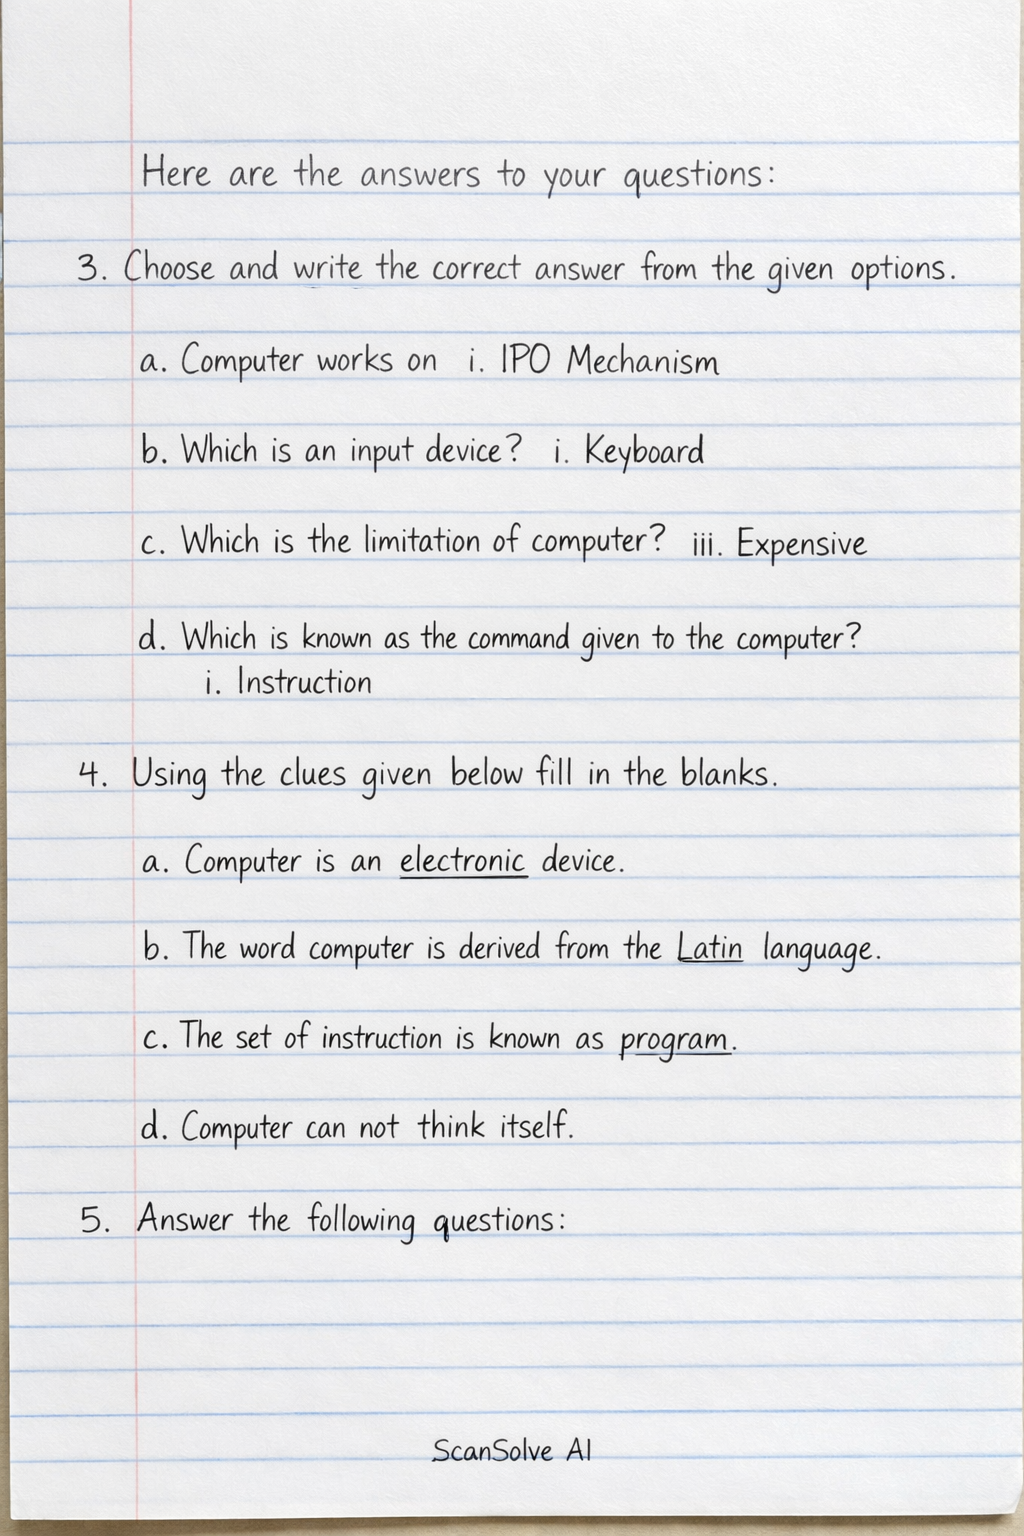 Here are the answers to your questions:
3. Choose and write the correct answer from the given options.
a. Computer works on i. IPO Mechanism
b. Which is an input device? i. Keyboard
c. Which is the limitation of computer? iii. Expensive
d. Which is known as the command given to the computer?
i. Instruction
4. Using the clues given below fill in the blanks.
a. Computer is an electronic device.
b. The word computer is derived from the Latin language.
c. The set of instruction is known as program.
d. Computer can not think itself.
5. Answer the following questions:
ScanSolve AI